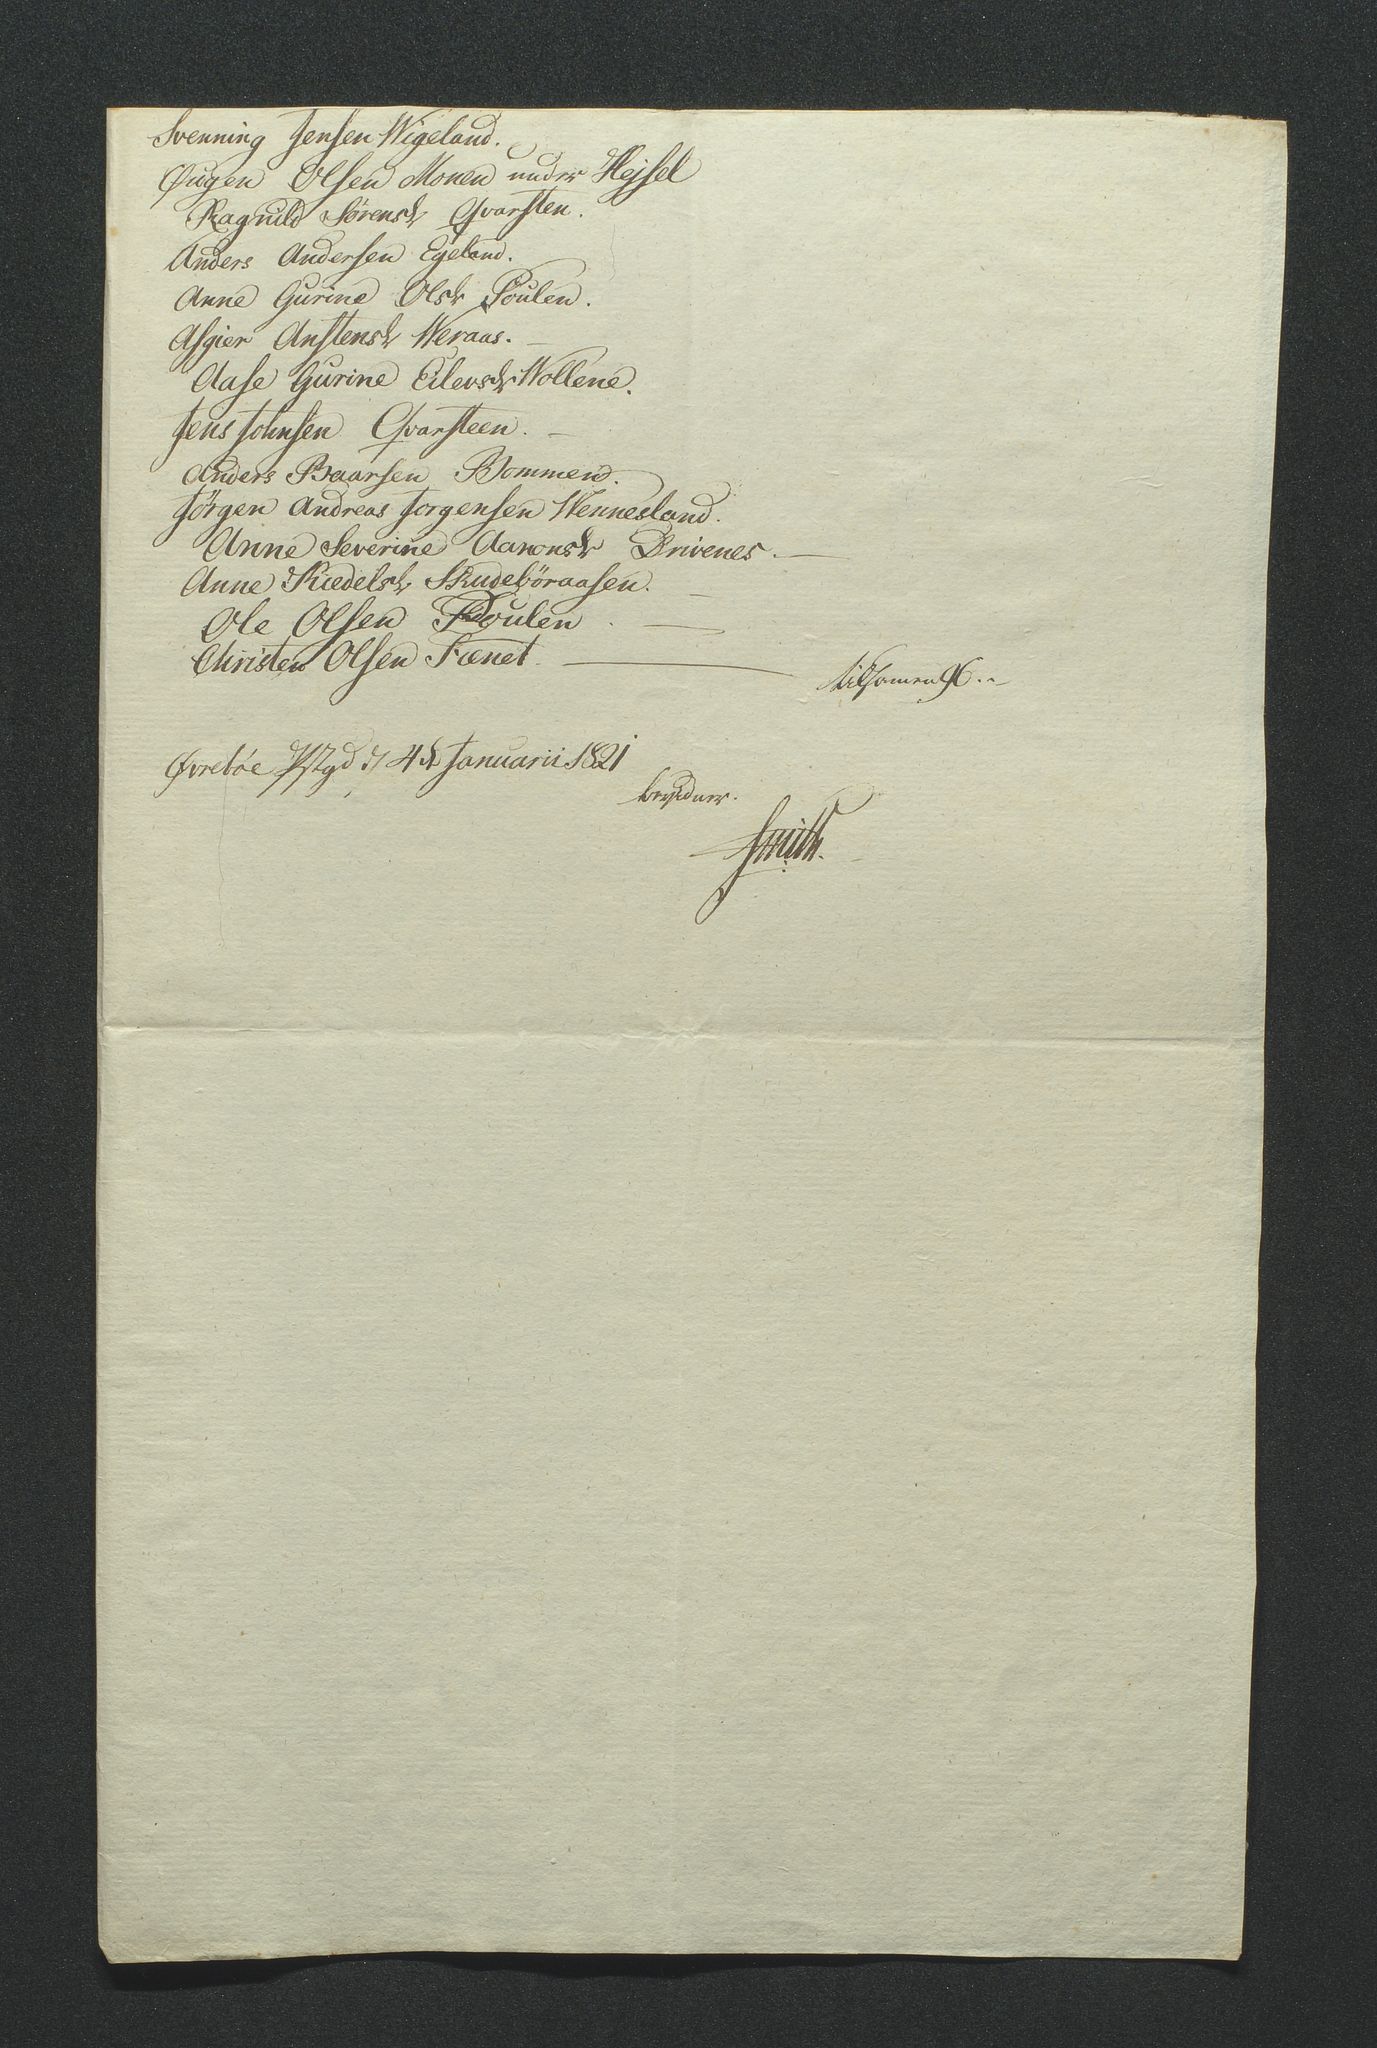 Svenning Jensen Wigeland.
Øugen Olsen Monen under Hejsel
Ragnild Sørensdr Qvarsten.
Anders Andersen Egeland.
Anne Gurine Olsdr Poulen.
Asgier Anstensdr Weraas. —
Aase Gurine Eilersdr Wollene.
Jens Johnsen Qvarsteen. —
Anders Baarsen Bommen.
Jørgen Andreas Jorgensen Wennesland.
Anne Severine Aaronsdr Drivenes. —
Anne Kiedelsdr Skudebøraasen. —
Ole Olsen Poulen. —
Christen Olsen Fænet. —
tilsamen 96.
Øvrebøe Pstgd d 4de Januarii 1821
bevidner.
Smith.